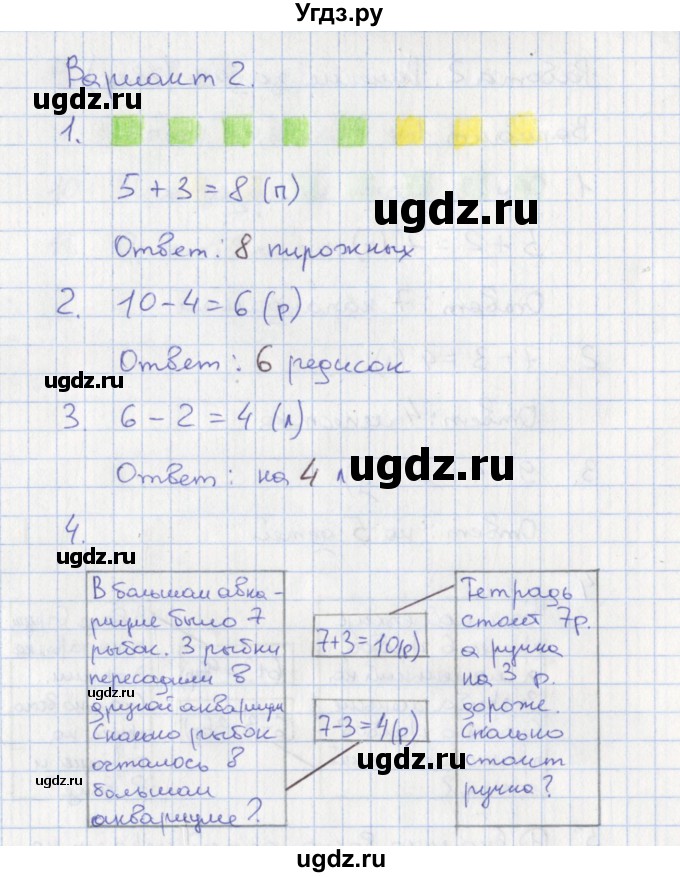 Угдз.ру
Вариант 2.
ugdz.ru
1.
5 + 3 = 8 (п)
ugdz.ru
Ответ: 8 пирожных
2. 10 - 4 = 6 (р)
Ответ: 6 редисок
ugdz.ru
3. 6 - 2 = 4 (л)
ugdz.ru
Ответ: на 4 л
4.
ugdz.ru
ugdz.ru
В большом аква-
риуме было 7
рыбок. 3 рыбки
пересадили в
другой аквариум
Сколько рыбок
осталось в
большом
аквариуме?
7+3=10(р)
7-3=4(р)
Тетрадь
стоит 7р.
а ручка
на 3 р.
дороже.
Сколько
стоит
ручка?
ugdz.ru
ugdz.ru
ugdz.ru
ugdz.ru